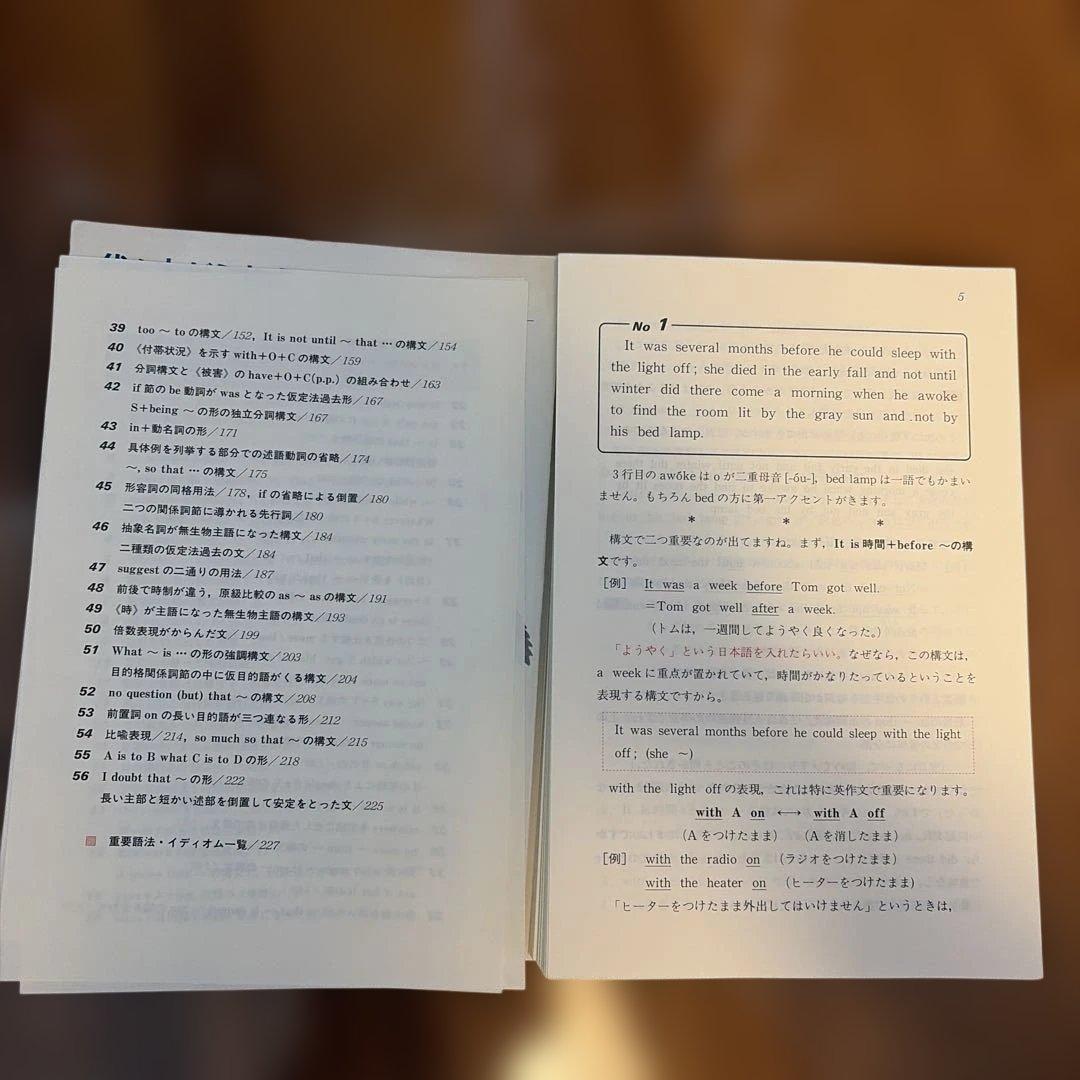 39 too ～ to の構文／152，It is not until ～ that … の構文／154
40 《付帯状況》を示す with＋O＋C の構文／159
41 分詞構文と《被害》の have＋O＋C(p.p.) の組み合わせ／163
42 if 節の be 動詞が was となった仮定法過去形／167
S＋being ～ の形の独立分詞構文／167
43 in＋動名詞の形／171
44 具体例を列挙する部分での述語動詞の省略／174
～, so that … の構文／175
45 形容詞の同格用法／178，if の省略による倒置／180
二つの関係詞節に導かれる先行詞／180
46 抽象名詞が無生物主語になった構文／184
二種類の仮定法過去の文／184
47 suggest の二通りの用法／187
48 前後で時制が違う，原級比較の as ～ as の構文／191
49 《時》が主語になった無生物主語の構文／193
50 倍数表現がからんだ文／199
51 What ～ is … の形の強調構文／203
目的格関係詞節の中に仮目的語がくる構文／204
52 no question (but) that ～ の構文／208
53 前置詞 on の長い目的語が三つ連なる形／212
54 比喩表現／214，so much so that ～ の構文／215
55 A is to B what C is to D の形／218
56 I doubt that ～ の形／222
長い主部と短かい述部を倒置して安定をとった文／225
重要語法・イディオム一覧／227
5
No 1
It was several months before he could sleep with
the light off ; she died in the early fall and not until
winter did there come a morning when he awoke
to find the room lit by the gray sun and not by
his bed lamp.
3行目の awōke は o が二重母音 [-óu-]，bed lamp は一語でもかまい
ません。もちろん bed の方に第一アクセントがきます。
＊ ＊ ＊
構文で二つ重要なのが出てますね。まず，It is 時間＋before ～の構
文です。
［例］ It was a week before Tom got well.
＝Tom got well after a week.
（トムは，一週間してようやく良くなった。）
「ようやく」という日本語を入れたらいい。なぜなら，この構文は，
a week に重点が置かれていて，時間がかなりたっているということを
表現する構文ですから。
It was several months before he could sleep with the light
off ; (she ～)
with the light off の表現，これは特に英作文で重要になります。
with A on ⟷ with A off
（A をつけたまま） （A を消したまま）
［例］ with the radio on （ラジオをつけたまま）
with the heater on （ヒーターをつけたまま）
「ヒーターをつけたまま外出してはいけません」というときは，